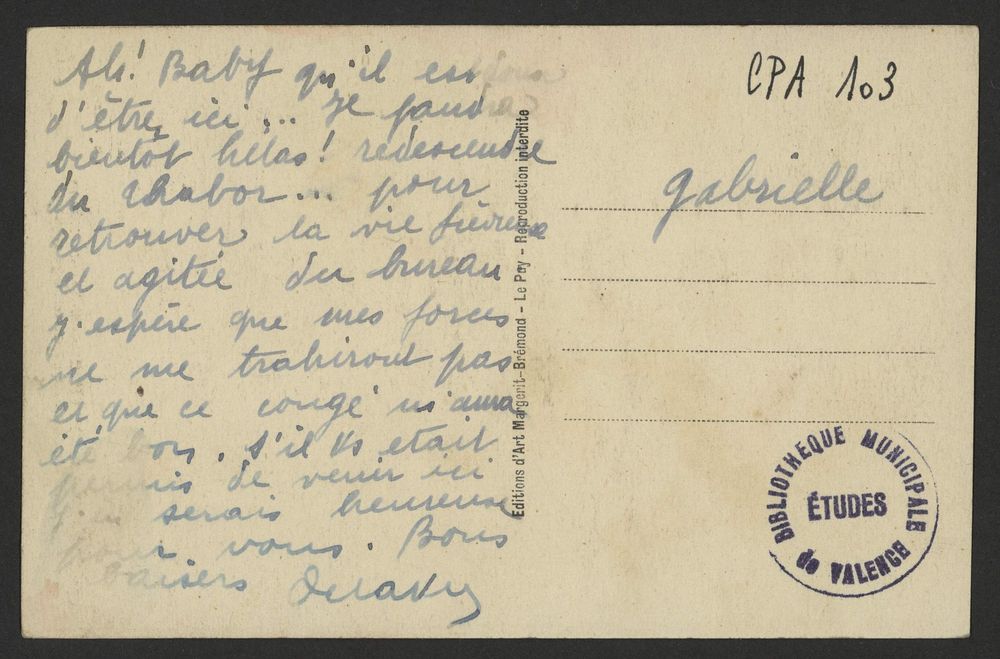 Ah! Baby qu'il est
d'être ici ... Je faud
bientôt hélas! redescendre
du Thabor ... pour
retrouver la vie fiévreuse
et agitée du bureau
J'espère que mes forces
ne me trahiront pas
et que ce congé m'aura
été bon. S'il Vs était
permis de venir ici
serais heureuse
pour vous. Bons
baisers
Editions d'Art Margerit-Brémond - Le Puy - Reproduction interdite
CPA 103
Gabrielle
BIBLIOTHEQUE MUNICIPALE
ÉTUDES
de VALENCE